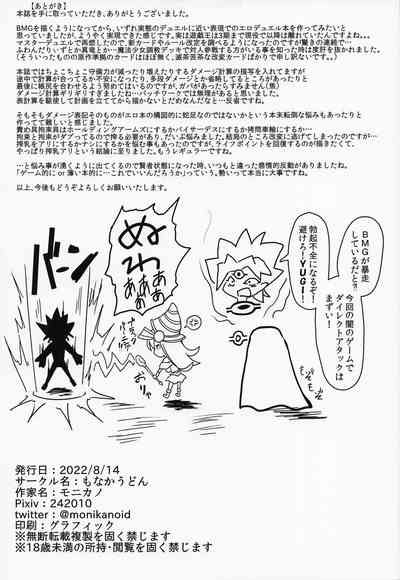 【あとがき】
本誌を手に取っていただき、ありがとうございました。
BMGを描くようになってから、いずれ実際のデュエルに近い表現でのエロデュエル本を作ってみたいと
思っていましたが、ようやく実現できた感じです。実は遊戯王は3期まで現役で以降は離れていたんですよね。。。
マスターデュエルで再燃したので、新カードやルール改定を調べるようになったのですが驚きの連続で…
ふわんだりぃずとか真竜とか…魔法少女調教デッキで対人参戦する方がいる事を知った時は度肝を抜かれました。
(そういったものの原作準拠のカードはほぼ無く、滅茶苦茶な改変カードばかりで申し訳ない訳です。。)
本誌ではちょこちょこ守備力が減ったり増えたりするダメージ計算の描写を入れてますが
途中で計算が合ってるか不安になったり、多段ダメージとか省略してるところあったりと
最後に帳尻を合わせるよう努めてはいるのですが、ガバがあったらすみません(焦)
ダメージ計算がギリギリすぎましたね…パッチワークでは無理があると思いました。
表計算を駆使して計画を立ててから描かないとだめなんだなと…反省ですね。
そもそもダメージ表記そのものがエロ本の構図的に蛇足なのではないかという本末転倒な悩みもあったりと
作ってて難しいと感じました。
責め具拘束具はホールディングアームズにするかバイサーデスにするか拷問車輪にするか…
拘束と刺激がダブってるので搾る必要があり、だいぶ悩みました。結局のところ改変に逃げてしまったのですが…
搾乳をアリにするかナシにするかを悩む事もあったのですが、ライフポイントを回復するのが描きたくて、
やっぱり搾乳アリという結論に至りました。もうレギュラーですね。
…と悩み事が湧くように出てくるので賢者状態になった時、いつもと違った感情的反動がありましたね。
「ゲーム的に or 薄い本的に…これでいいんだろうか」っていう。勢いって本当に大事ですね。
以上、今後もどうぞよろしくお願いいたします。
BMGが暴走
しているだと?!
今回の闇のゲームで
ダイレクトアタックは
まずい!
勃起不全になるぞ!
避けろ!YUGI!
ぬわ
ああ
ああ
バーン
おりゃ
もぞもぞ
発行日：2022/8/14
サークル名：もなかうどん
作家名：モニカノ
Pixiv：242010
twitter：@monikanoid
印刷：グラフィック
※無断転載複製を固く禁じます
※18歳未満の所持・閲覧を固く禁じます